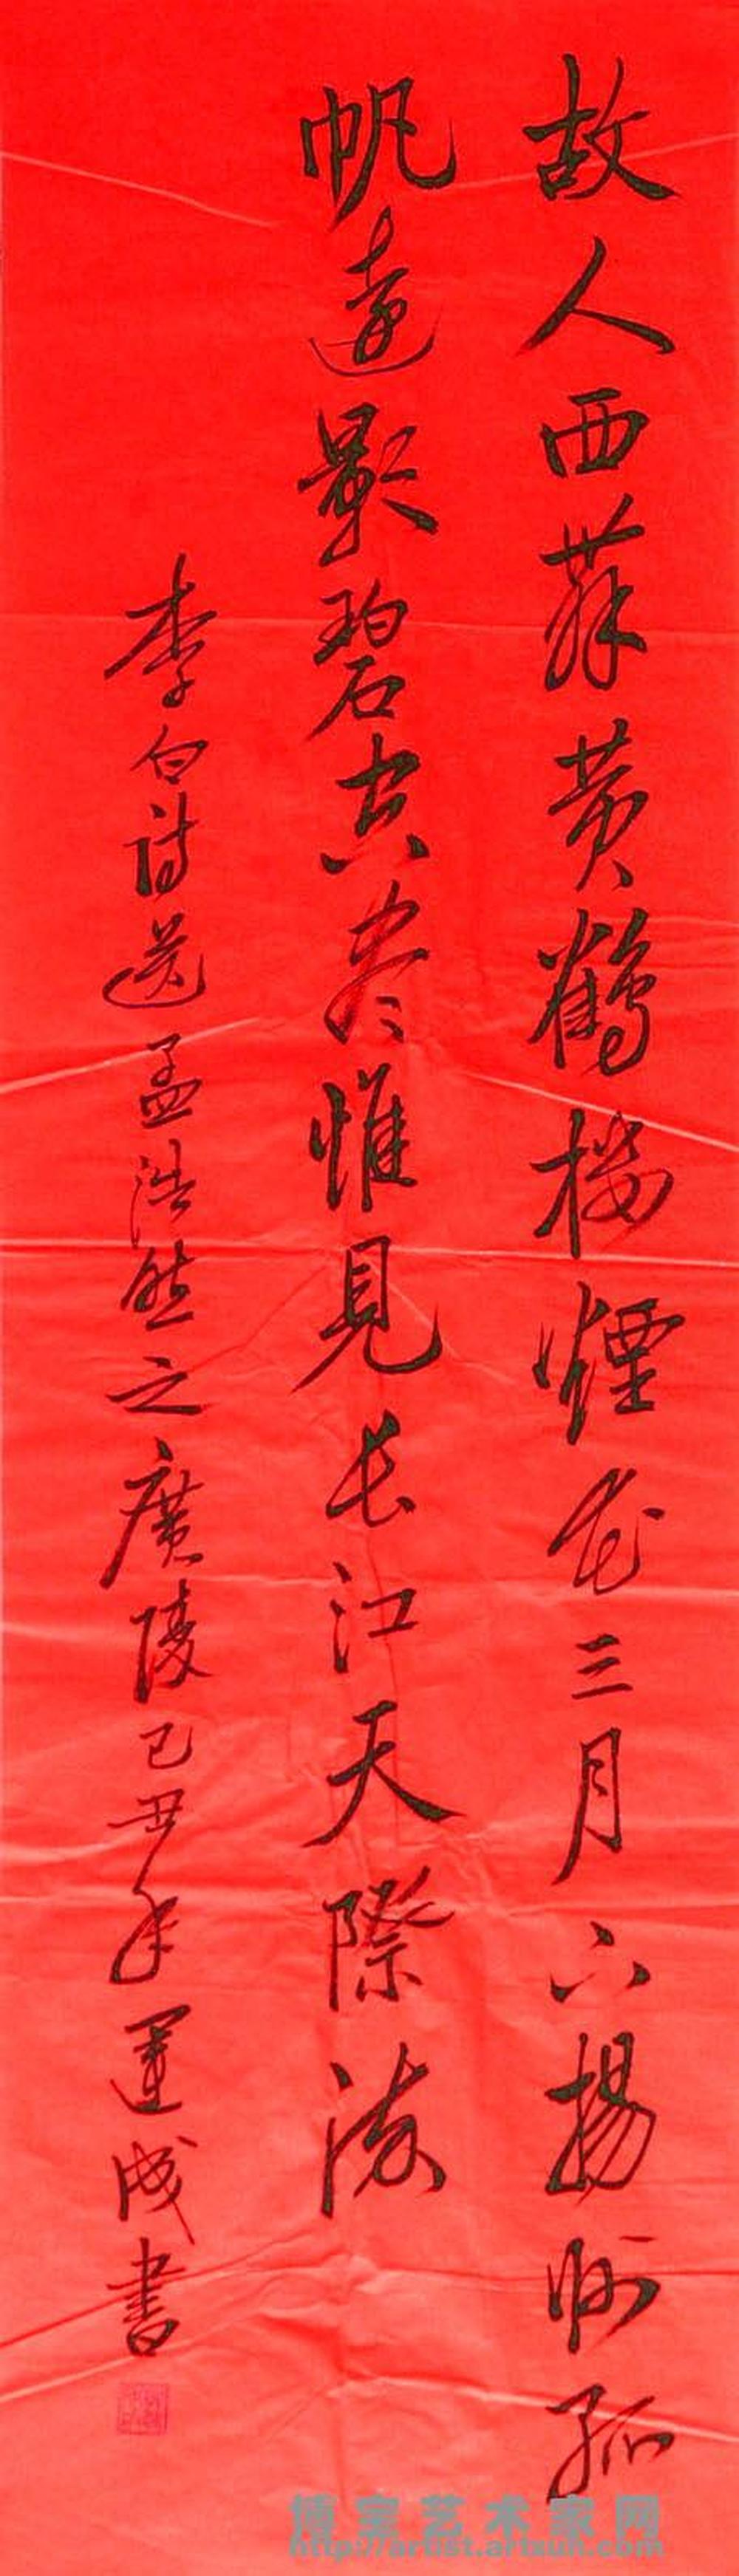 故人西辞黄鶴楼煙花三月下揚州孤
帆遠影碧空尽惟見长江天際流
李白诗送孟浩然之廣陵己丑年運成書
博宝艺术家网
http://artist.artxun.com